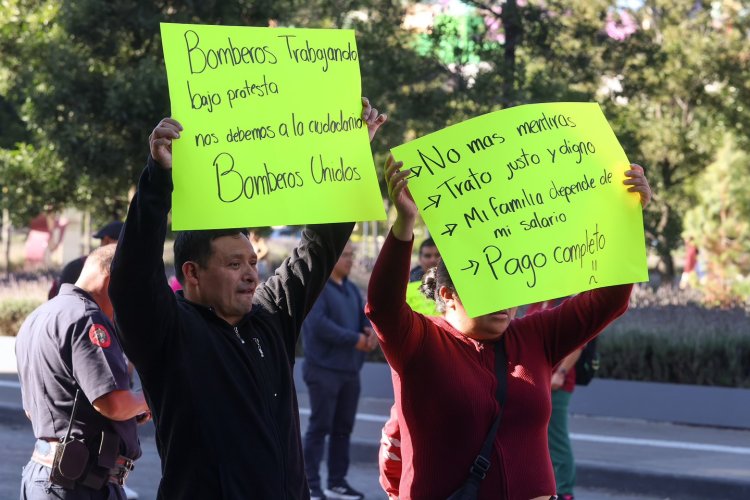 Bomberos Trabajando
bajo protesta
nos debemos a la ciudadania
Bomberos Unidos
→ No mas mentiras
→ Trato justo y digno
→ Mi familia depende de
mi salario
→ Pago completo